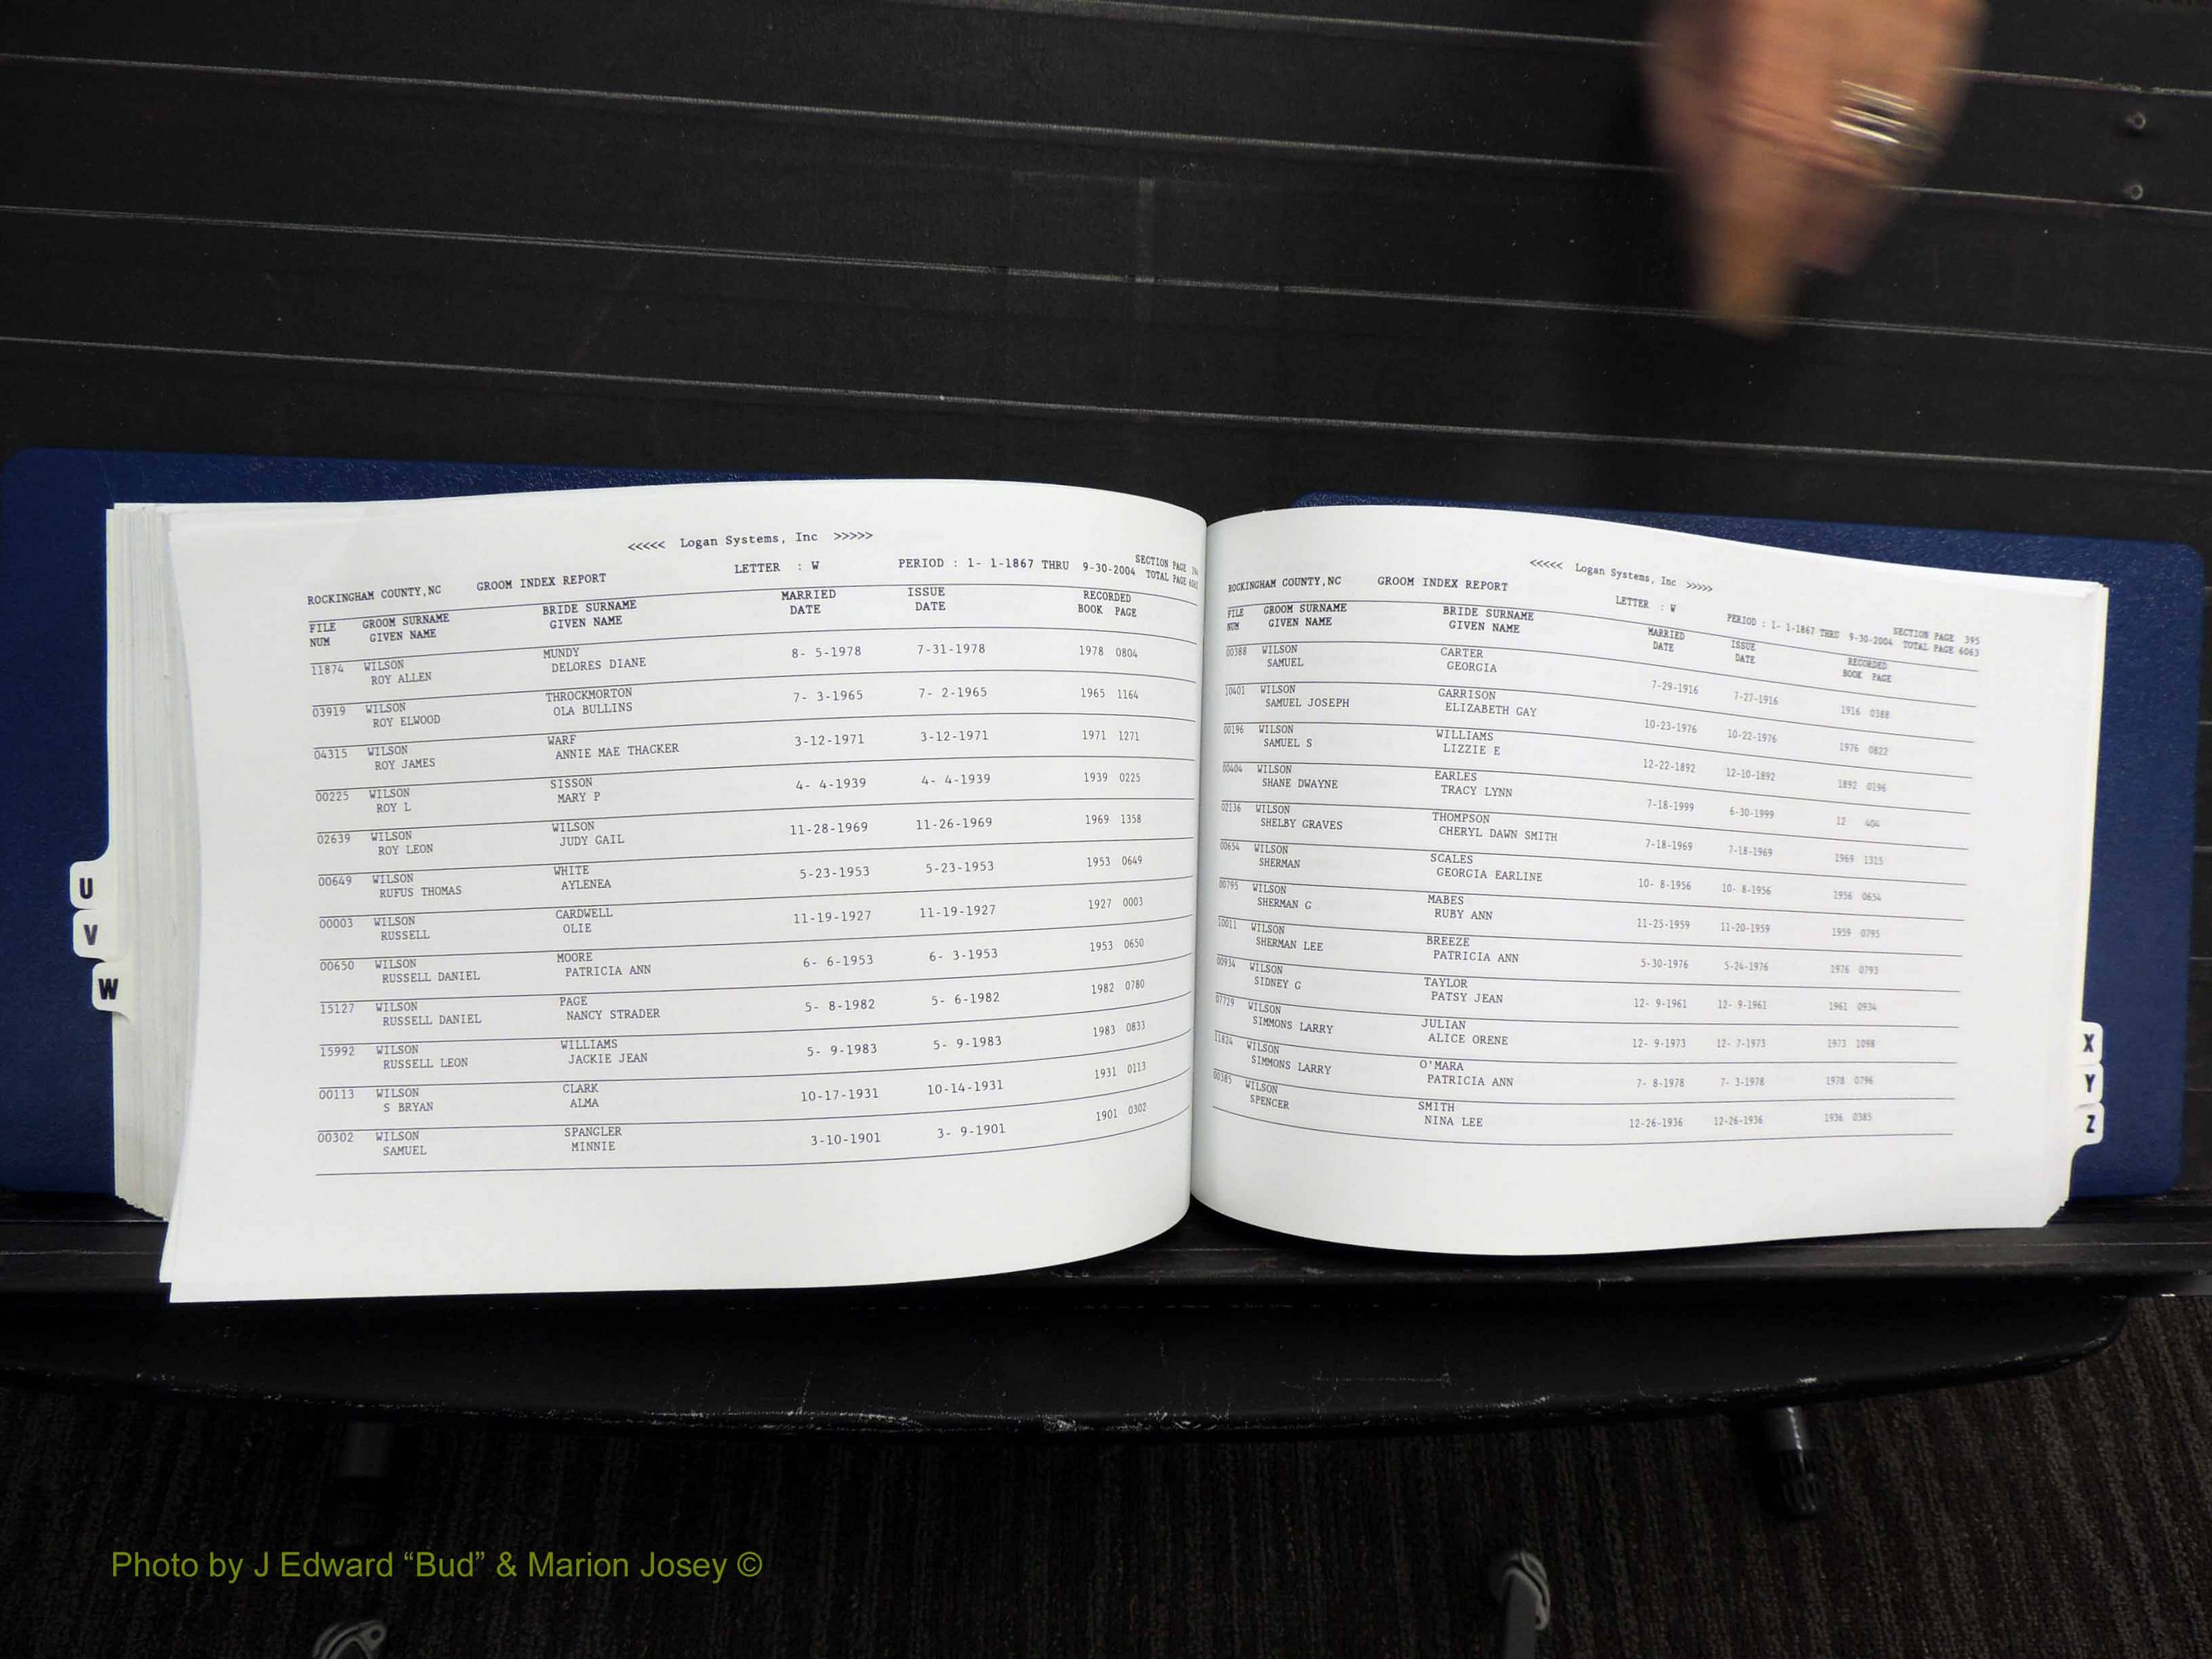 <<<<< Logan Systems, Inc >>>>>
ROCKINGHAM COUNTY,NC GROOM INDEX REPORT LETTER : W PERIOD : 1- 1-1867 THRU 9-30-2004 SECTION PAGE
TOTAL PAGE
FILE GROOM SURNAME BRIDE SURNAME MARRIED ISSUE RECORDED
NUM GIVEN NAME GIVEN NAME DATE DATE BOOK PAGE
11874 WILSON MUNDY 8- 5-1978 7-31-1978 1978 0804
ROY ALLEN DELORES DIANE
03919 WILSON THROCKMORTON 7- 3-1965 7- 2-1965 1965 1164
ROY ELWOOD OLA BULLINS
04315 WILSON WARF 3-12-1971 3-12-1971 1971 1271
ROY JAMES ANNIE MAE THACKER
00225 WILSON SISSON 4- 4-1939 4- 4-1939 1939 0225
ROY L MARY P
02639 WILSON WILSON 11-28-1969 11-26-1969 1969 1358
ROY LEON JUDY GAIL
00649 WILSON WHITE 5-23-1953 5-23-1953 1953 0649
RUFUS THOMAS AYLENEA
00003 WILSON CARDWELL 11-19-1927 11-19-1927 1927 0003
RUSSELL OLIE
00650 WILSON MOORE 6- 6-1953 6- 3-1953 1953 0650
RUSSELL DANIEL PATRICIA ANN
15127 WILSON PAGE 5- 8-1982 5- 6-1982 1982 0780
RUSSELL DANIEL NANCY STRADER
15992 WILSON WILLIAMS 5- 9-1983 5- 9-1983 1983 0833
RUSSELL LEON JACKIE JEAN
00113 WILSON CLARK 10-17-1931 10-14-1931 1931 0113
S BRYAN ALMA
00302 WILSON SPANGLER 3-10-1901 3- 9-1901 1901 0302
SAMUEL MINNIE
U
V
W
<<<<< Logan Systems, Inc >>>>>
ROCKINGHAM COUNTY,NC GROOM INDEX REPORT LETTER : W PERIOD : 1- 1-1867 THRU 9-30-2004 SECTION PAGE 395
TOTAL PAGE 6063
FILE GROOM SURNAME BRIDE SURNAME MARRIED ISSUE RECORDED
NUM GIVEN NAME GIVEN NAME DATE DATE BOOK PAGE
00388 WILSON CARTER 7-29-1916 7-27-1916 1916 0388
SAMUEL GEORGIA
10401 WILSON GARRISON 10-23-1976 10-22-1976 1976 0822
SAMUEL JOSEPH ELIZABETH GAY
00196 WILSON WILLIAMS 12-22-1892 12-10-1892 1892 0196
SAMUEL S LIZZIE E
00404 WILSON EARLES 7-18-1999 6-30-1999 12 404
SHANE DWAYNE TRACY LYNN
02136 WILSON THOMPSON 7-18-1969 7-18-1969 1969 1315
SHELBY GRAVES CHERYL DAWN SMITH
00654 WILSON SCALES 10- 8-1956 10- 8-1956 1956 0654
SHERMAN GEORGIA EARLINE
00795 WILSON MABES 11-25-1959 11-20-1959 1959 0795
SHERMAN G RUBY ANN
10011 WILSON BREEZE 5-30-1976 5-24-1976 1976 0793
SHERMAN LEE PATRICIA ANN
00934 WILSON TAYLOR 12- 9-1961 12- 9-1961 1961 0934
SIDNEY G PATSY JEAN
07729 WILSON JULIAN 12- 9-1973 12- 7-1973 1973 1098
SIMMONS LARRY ALICE ORENE
11824 WILSON O'MARA 7- 8-1978 7- 3-1978 1978 0796
SIMMONS LARRY PATRICIA ANN
00385 WILSON SMITH 12-26-1936 12-26-1936 1936 0385
SPENCER NINA LEE
X
Y
Z
Photo by J Edward “Bud” & Marion Josey ©